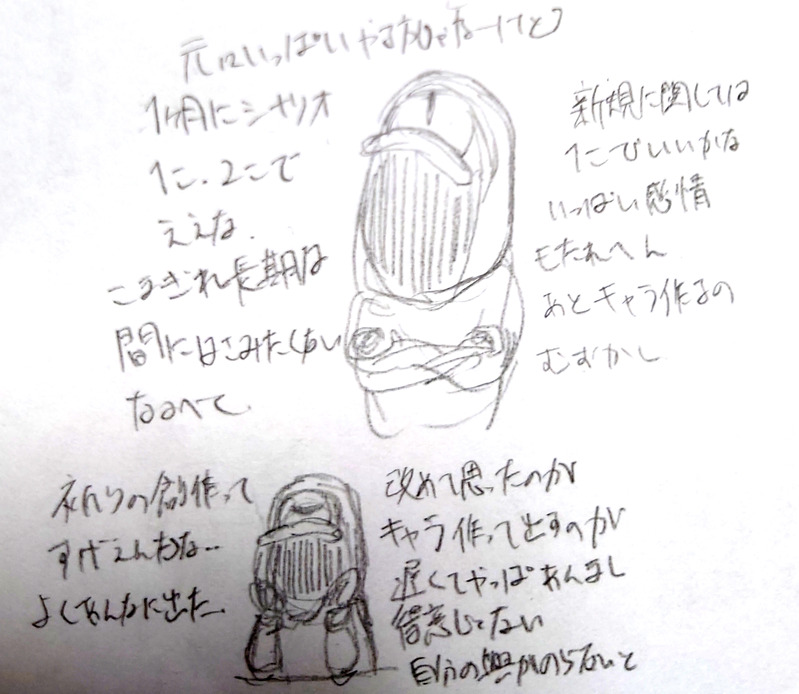 元はいっぱいやる
1ヶ月にシナリオ
1こ、2こで
ええな。
こまぎれ長期は
間にはこみたくない
なるべく
新規に関しては
1こでいいかな
いっぱい感情
もたれへん
あとキャラ作るの
むずかし
祈りの創作って
すげえんだな…
よくあんなに出た。
改めて思ったのが
キャラ作って出すのが
遅くてやっぱあんまし
得意じゃない
自分の興がのらないと